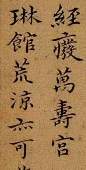 經廢萬壽宮
琳館荒涼亦可